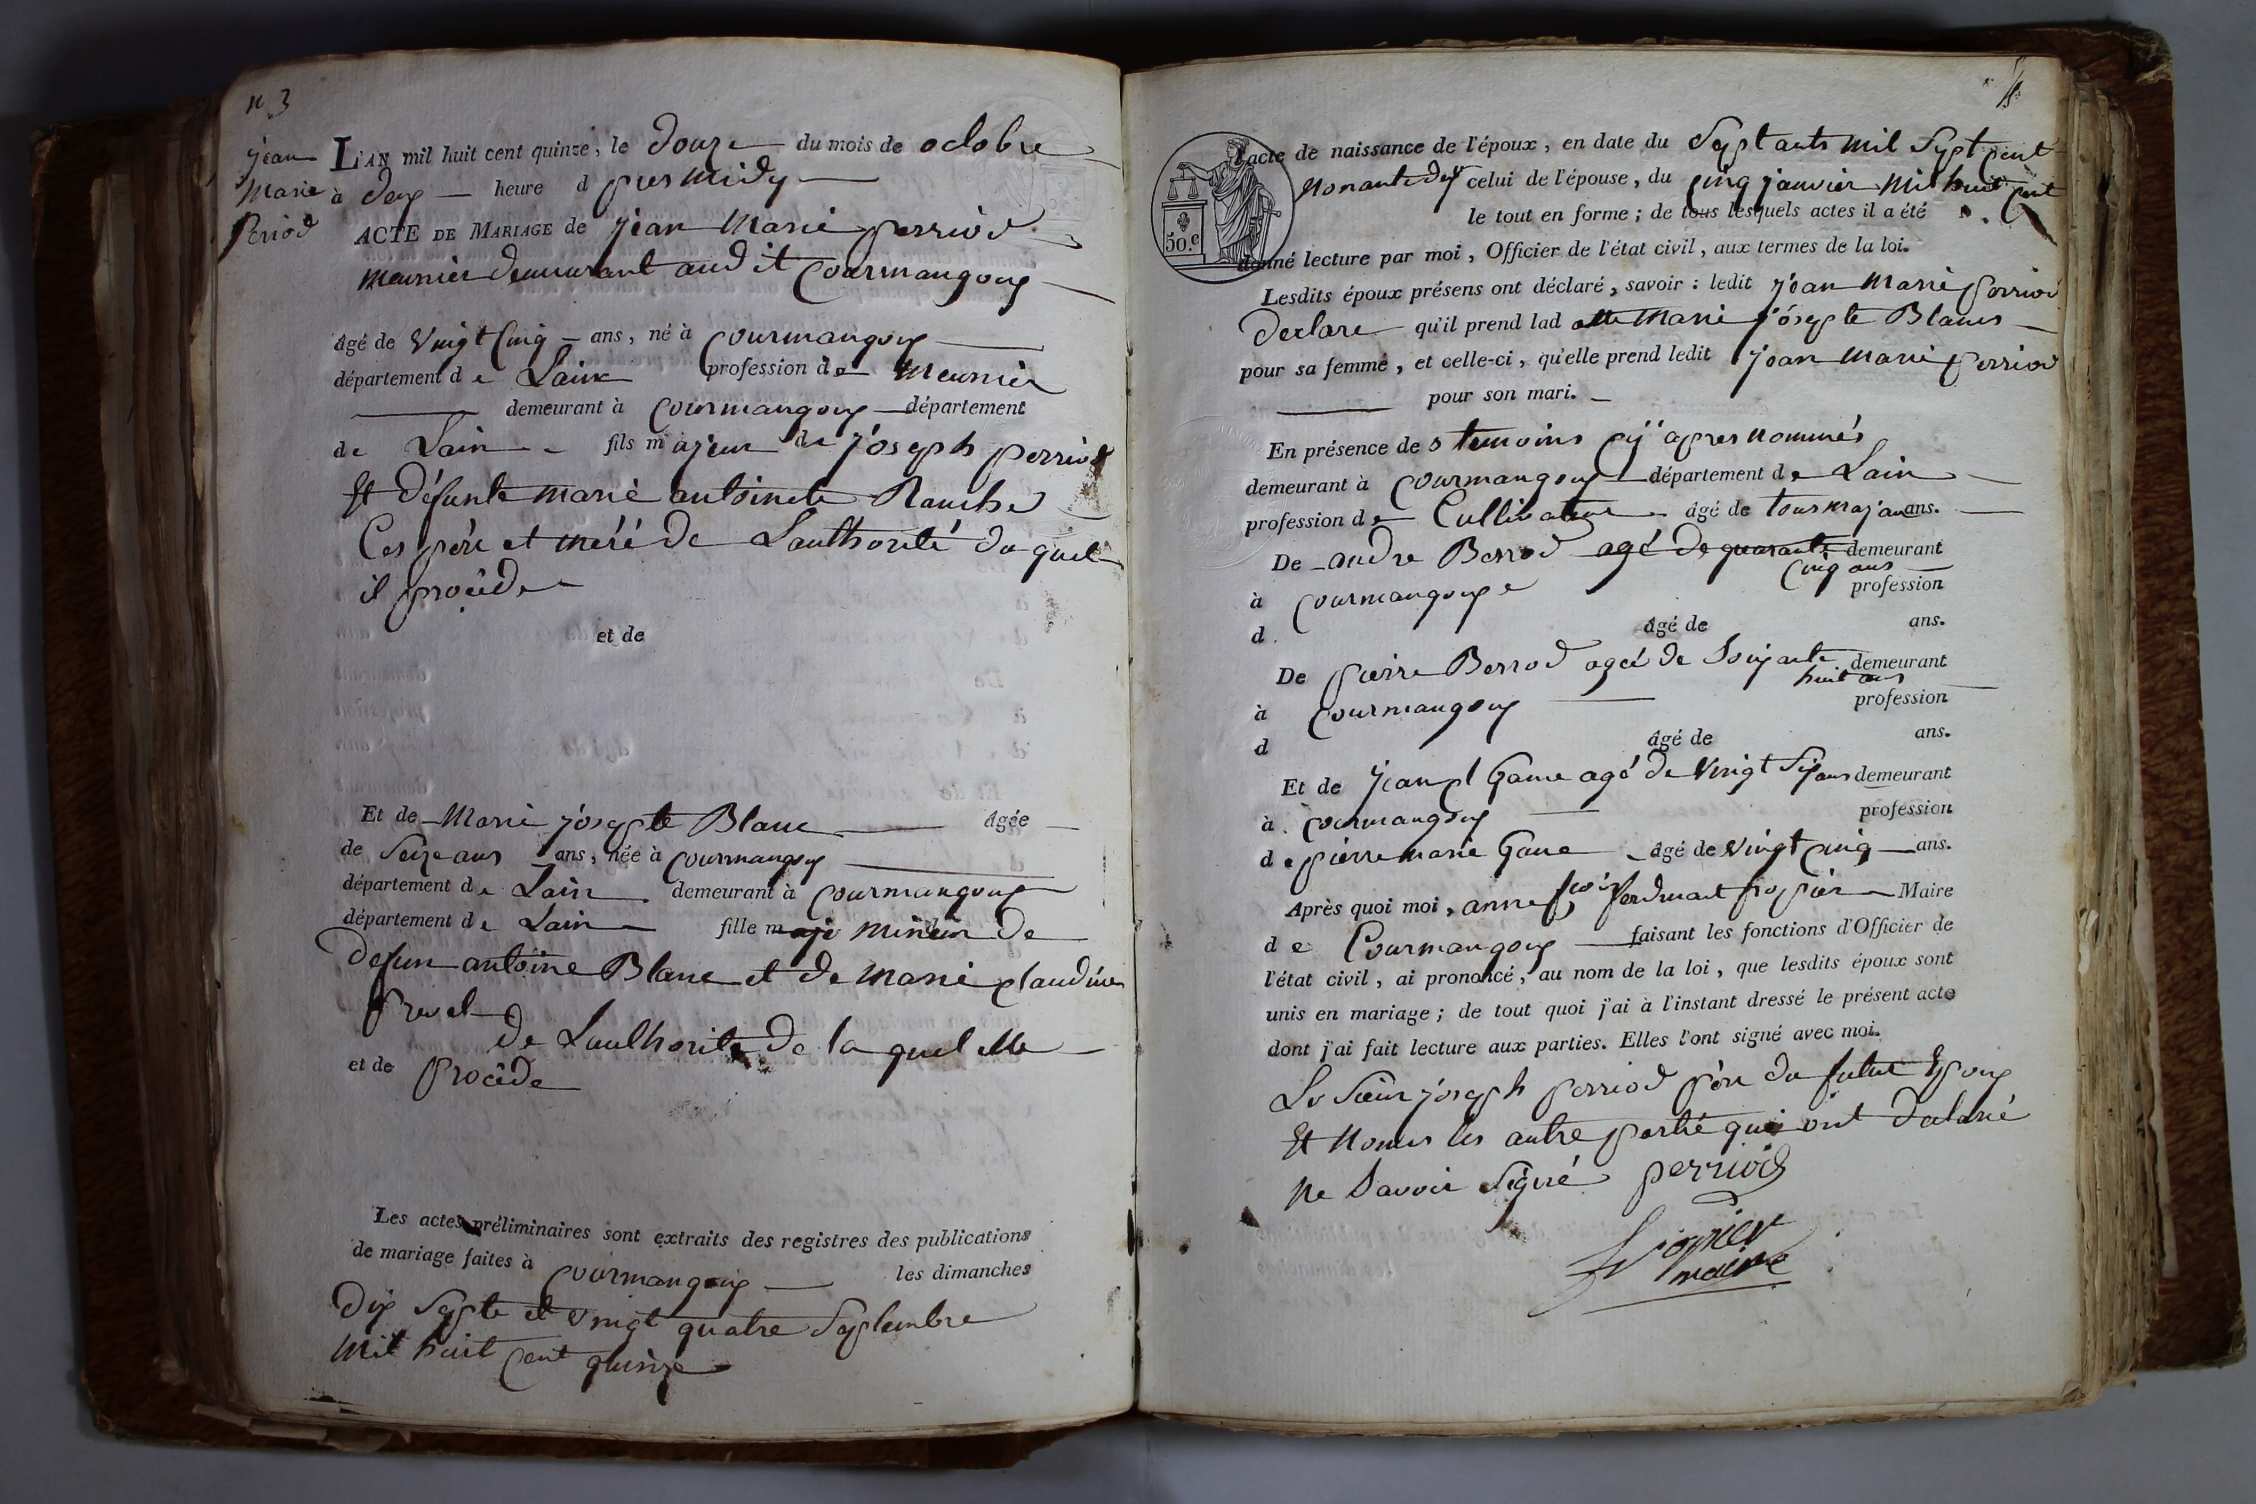 n 3
jean
Marie
Perriod
L'AN mil huit cent quinze, le Douze du mois de octobre
à deux heure d pres midy
ACTE DE MARIAGE de jean Marie perriod
meunier demeurant audit Courmangoux
âgé de Vingt Cinq ans, né à Courmangoux
département de Lain profession de Meunier
demeurant à Courmangoux département
de Lain fils majeur de joseph perriod
Et défunte marie antoinete
Ces père et mere de Lauthorité du quel
il procède
et de
Et de Marie josepte Blanc âgée
de Seize ans ans, née à Courmangoux
département de Lain demeurant à Courmangoux
département de Lain fille m mineur de
defun antoine Blanc et de marie claudine
Prevel
de Lauthorite de la quel elle
et de procède
Les actes préliminaires sont extraits des registres des publications
de mariage faites à Courmangoux les dimanches
Dix Septe et Vingt quatre Septembre
Mil huit Cent quinze
l'acte de naissance de l'époux, en date du Sept Mil Sept Cent
Nonante deux celui de l'épouse, du Cinq janvier Mil huit Cent
le tout en forme; de tous lesquels actes il a été
donné lecture par moi, Officier de l'état civil, aux termes de la loi.
Lesdits époux présens ont déclaré, savoir: ledit jean Marie perriod
Declare qu'il prend lad Marie josepte Blanc
pour sa femme, et celle-ci, qu'elle prend ledit jean Marie perriod
pour son mari.
En présence des temoins cy apres nommés
demeurant à Courmangoux département de Lain
profession de Cultivateur âgé de tous majeur ans.
De andre Berrod agé de quarante demeurant
Cinq ans
à Courmangoux profession
d âgé de ans.
De pierre Berrod agé de Soixante demeurant
huit ans
à Courmangoux profession
d âgé de ans.
Et de jean Game agé de Vingt Six ans demeurant
à Courmangoux profession
de pierre marie Game âgé de Vingt Cinq ans.
Après quoi moi, anne fçois ferdinant Maire
de Courmangoux faisant les fonctions d'Officier de
l'état civil, ai prononcé, au nom de la loi, que lesdits époux sont
unis en mariage; de tout quoi j'ai à l'instant dressé le présent acte
dont j'ai fait lecture aux parties. Elles l'ont signé avec moi.
Le Sieur joseph perriod père du futur Epoux
Et Nonus les autre partié qui ont Declaré
Ne Savoir Signé perriod
maire
50.c